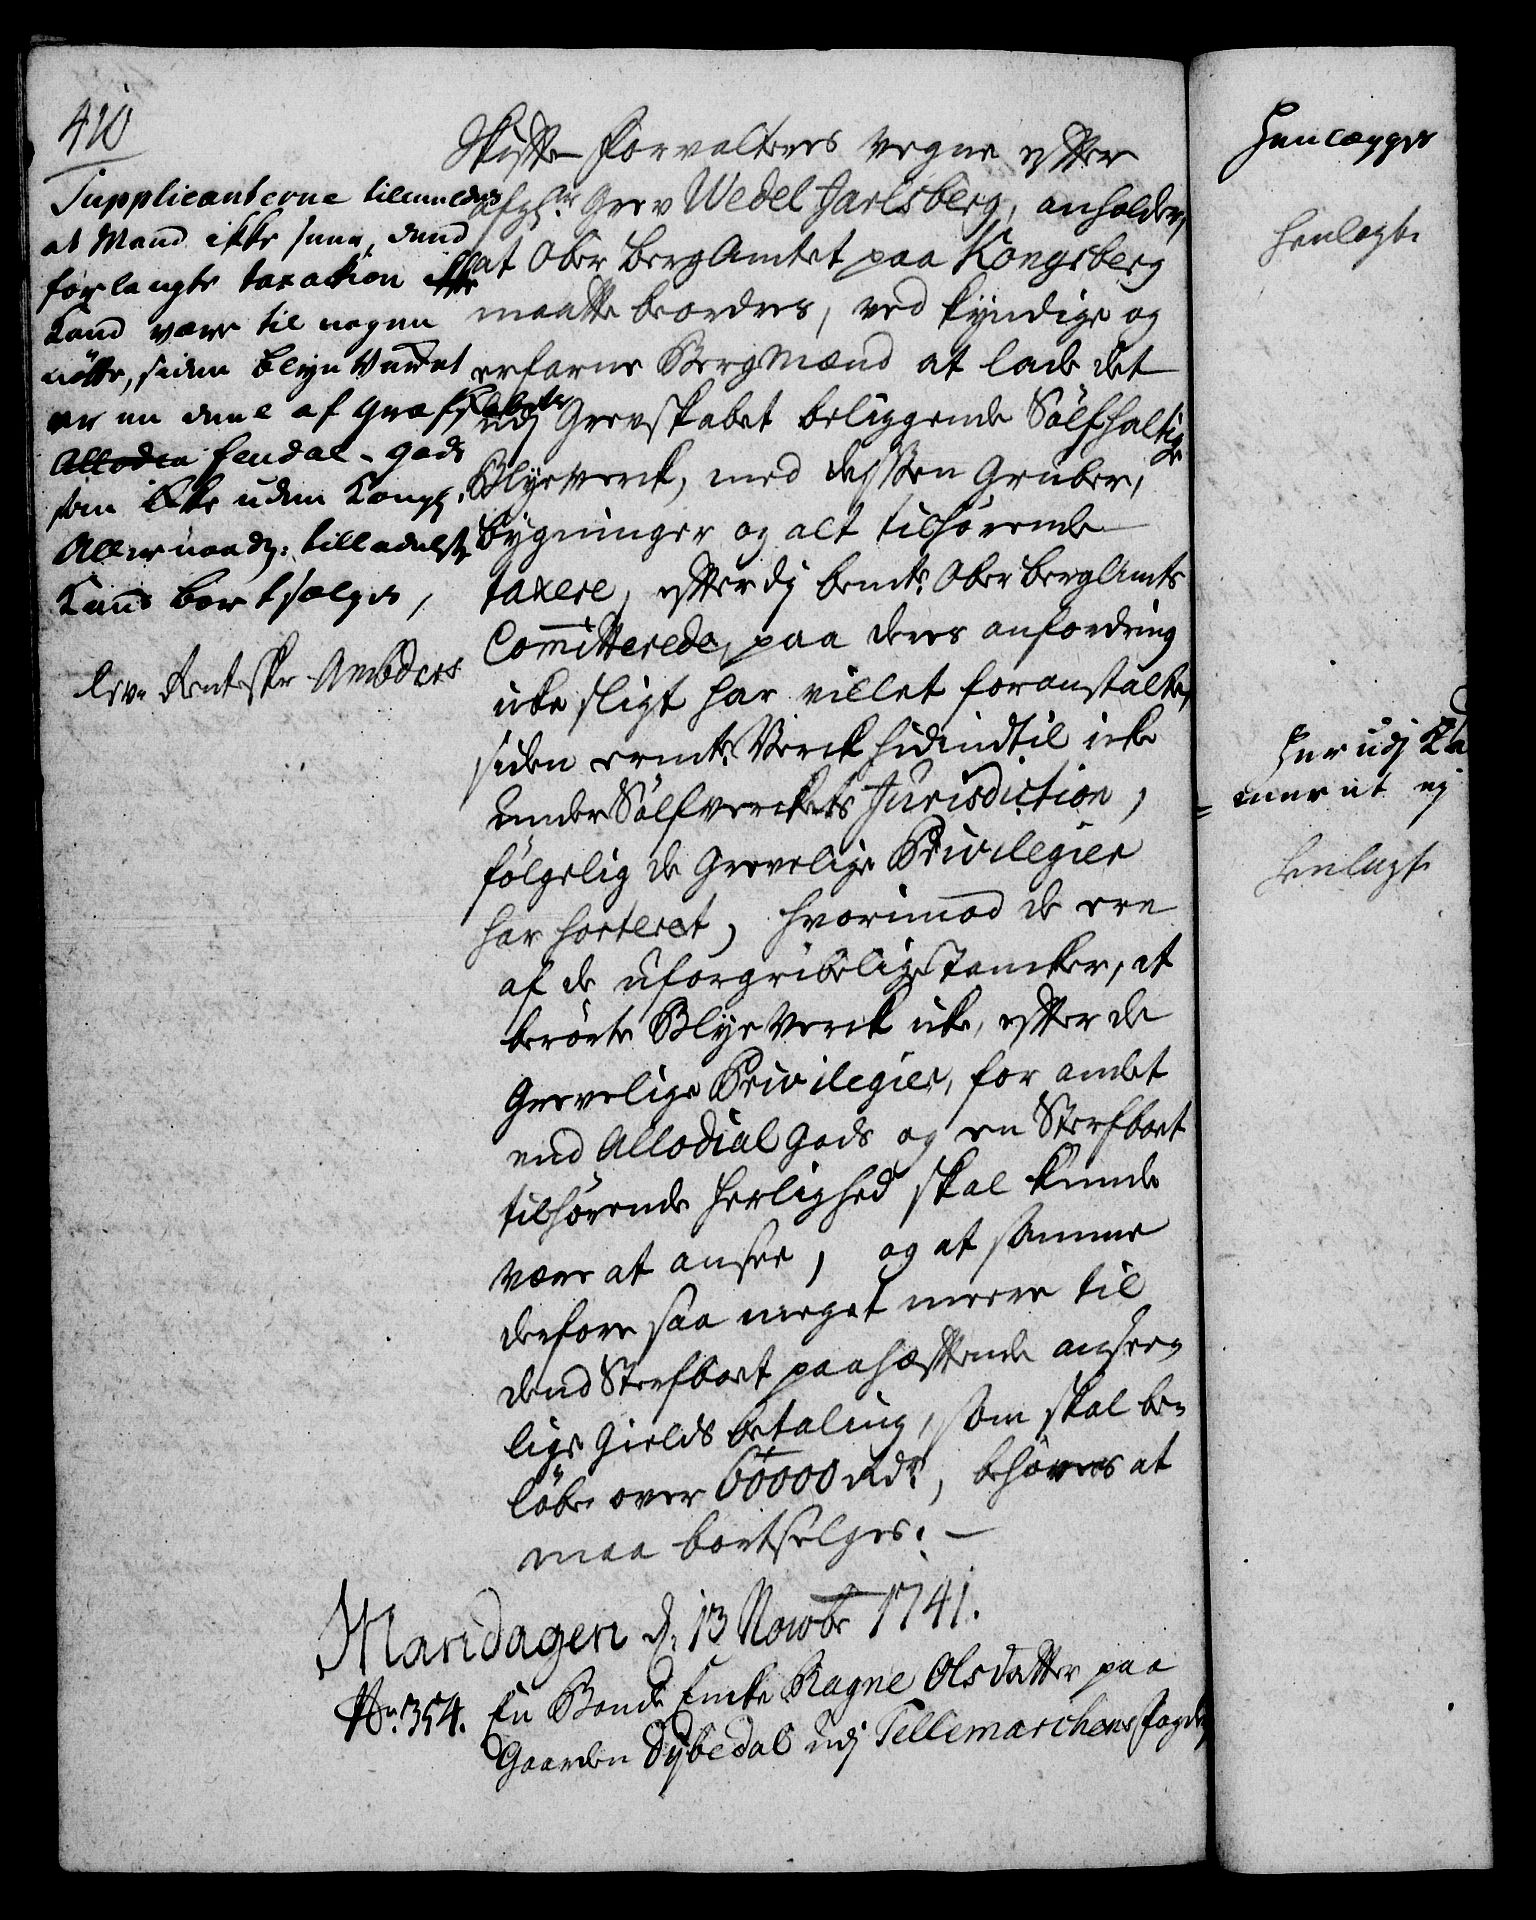 410
Supplicanterne tilmeldes
at Mand ikke seer, dend
forlangte taxation
Kand være til nogen
nötte, siden blye Verket
er en deel af Grefskabets
Allodia feudal-gods
som ikke uden Kongl.
Allernaad: tilladelse
Kand bortsælges,
Renteskr
Skifte-Forvalteres vegne efter
afg: Grev Wedel Jarlsberg, anholder,
at Ober BergAmtet paa Kongsberg
maatte beordres, ved kyndige og
erfarne Bergmænd at lade det
udj Grevskabet beliggende Sölfholtige
Blyeverck, med dessen Gruber,
bygninger og alt tilhörende
taxere, efterdj bemte Ober BergAmts
Committerede, paa deres anfordring
icke sligt har villet foranstalte,
siden ermte Verck hidindtil icke
under Sölfverckets Jurisdiction,
fölgelig de Grevelige Privilegier
har sorteret, hvorimod de ere
af de uforgribelige Tancker, at
berörte Blye Verck icke, efter de
Grevelige Privilegier, for andet
end Allodial Gods og en Sterfboet
tilhörende herlighed skal kunde
være at ansee, og at samme
derfore saa meget meere til
dend Sterfboet paahæftende anseen-
lige Gields betaling, som skal be-
löbe over 60000 Rdr, behöves at
maa bortselges. -
Mandagen d. 13 Novbr 1741.
No. 354. En Bonde Encke Ragne Olsdatter paa
Gaarden Dybedal udj Tellemarchens fogde
Henlægges
henlagt
her udj
meret ej
henlagt